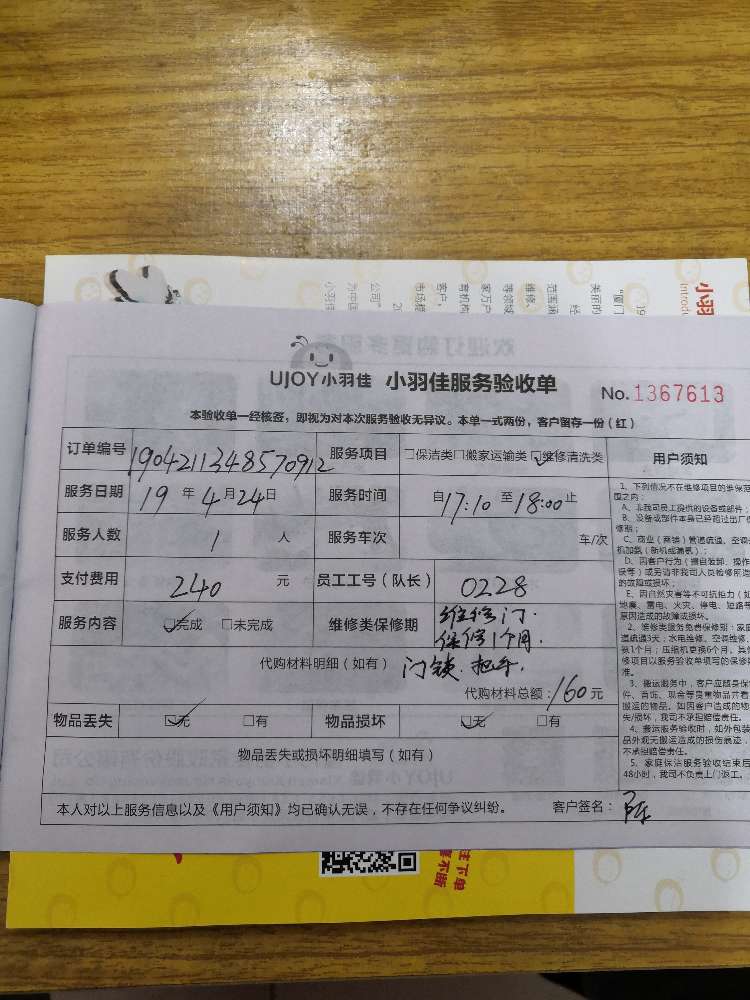 小羽
UJOY小羽佳 小羽佳服务验收单
No.1367613
本验收单一经核签，即视为对本次服务验收无异议。本单一式两份，客户留存一份（红）
订单编号 1904211348570912 服务项目 □保洁类□搬家运输类☑维修清洗类 用户须知
服务日期 19年4月24日 服务时间 自17:10至18:00止
服务人数 1人 服务车次 车/次
支付费用 240元 员工工号（队长） 0228
服务内容 ☑完成 □未完成 维修类保修期 维修门.
保修1个月.
代购材料明细（如有） 门锁.把手.
代购材料总额：160元
物品丢失 ☑无 □有 物品损坏 ☑无 □有
物品丢失或损坏明细填写（如有）
本人对以上服务信息以及《用户须知》均已确认无误，不存在任何争议纠纷。 客户签名：陈
1、下列情况不在维修项目的维保范
围之内：
A、非我司员工提供的设备或部件；
B、设备或部件本身已经超过出厂保
修期；
C、商业（商铺）管道疏通、空调
机加氟（新机或漏氟）；
D、因客户行为（擅自装卸、操作
误等）或另请非我司人员检修所造
的故障或损坏；
E、因自然灾害等不可抗拒力（如
地震、雷电、火灾、停电、短路等
原因造成的故障或损坏。
2、维修类服务免费保修期：家庭
道疏通3天；水电维修、空调维修、
数1个月；压缩机更换6个月。其
修项目以服务验收单填写的保修
准。
3、搬运服务中，客户应随身保
件、首饰、现金等贵重物品并看
搬运的物品。如因客户造成的物
失/损坏，我司不承担赔偿责任。
4、搬运服务验收时，如外包装
品外观无搬运造成的损伤痕迹，
不承担赔偿责任。
5、家庭保洁服务验收结束后
48小时，我司不负责上门返工。